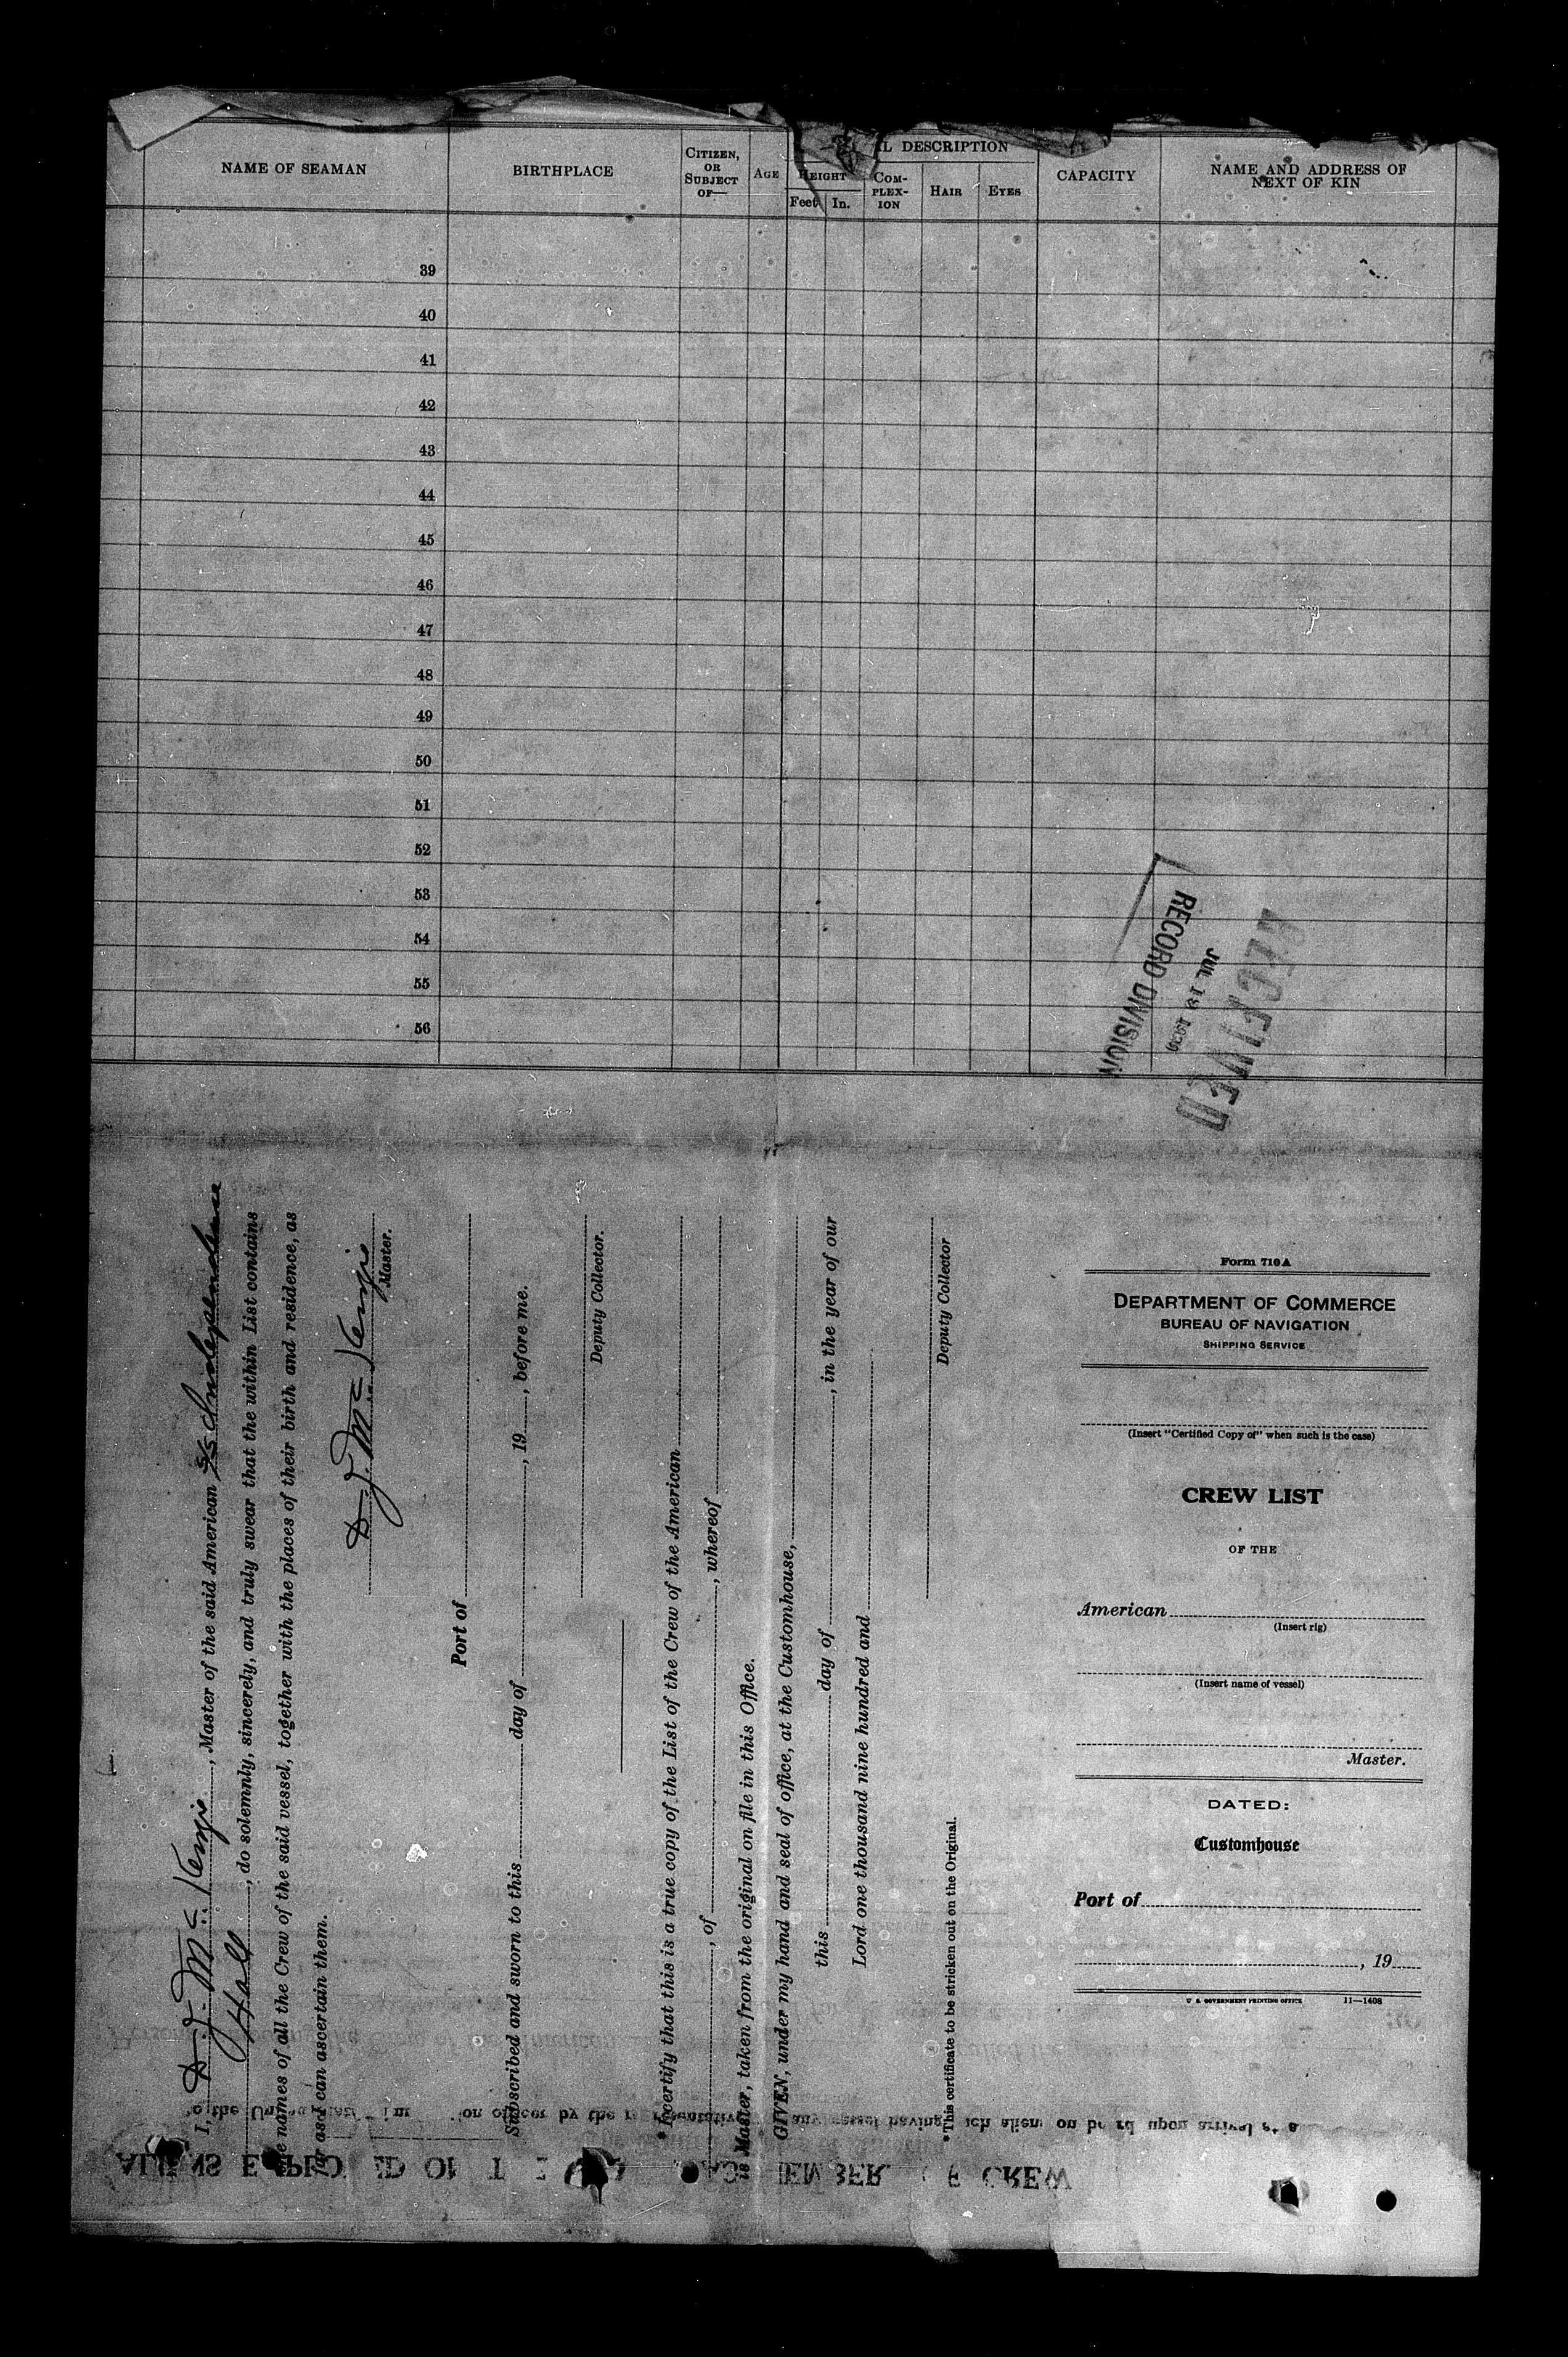 NAME OF SEAMAN
BIRTHPLACE
CITIZEN,
OR
SUBJECT
OF—
AGE
DESCRIPTION
HEIGHT
Feet
In.
COM-
PLEX-
ION
HAIR
EYES
CAPACITY
NAME AND ADDRESS OF
NEXT OF KIN
39
40
41
42
43
44
45
46
47
48
49
50
51
52
53
54
55
56
RECEIVED
JUL 18
RECORD DIVISION
I, D. J. McKenzie, Master of the said American S/S Independence
Hall, do solemnly, sincerely, and truly swear that the within List contains
names of all the Crew of the said vessel, together with the places of their birth and residence, as
far as I can ascertain them.
D. J. McKenzie
Master.
Port of
Subscribed and sworn to this day of , 19 , before me.
Deputy Collector.
*I certify that this is a true copy of the List of the Crew of the American
, of , whereof
is Master, taken from the original on file in this Office.
GIVEN, under my hand and seal of office, at the Customhouse,
this day of , in the year of our
Lord one thousand nine hundred and
Deputy Collector
*This certificate to be stricken out on the Original.
Form 710A
DEPARTMENT OF COMMERCE
BUREAU OF NAVIGATION
SHIPPING SERVICE
(Insert "Certified Copy of" when such is the case)
CREW LIST
OF THE
American
(Insert rig)
(Insert name of vessel)
Master.
DATED:
Customhouse
Port of
, 19
U. S. GOVERNMENT PRINTING OFFICE 11—1408